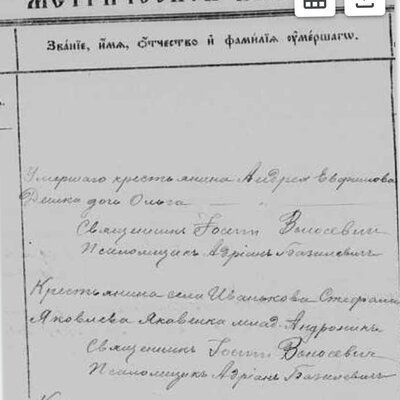 МЕТРИЧЕСКОЙ
Зва́нїе, и҆́мѧ, ѻ҆́тчество и҆ фами́лїѧ ᲂу҆ме́ршагѡ.
Умершаго крестьянина Андрея Евфимова
Дешка дочь Ольга
Священникъ Іосифъ Волосевичъ
Псаломщикъ Адріанъ Базилевичъ
Крестьянина села Иванькова Стефана
Яковлева Яковенка млад. Андроникъ
Священникъ Іосифъ Волосевичъ
Псаломщикъ Адріанъ Базилевичъ